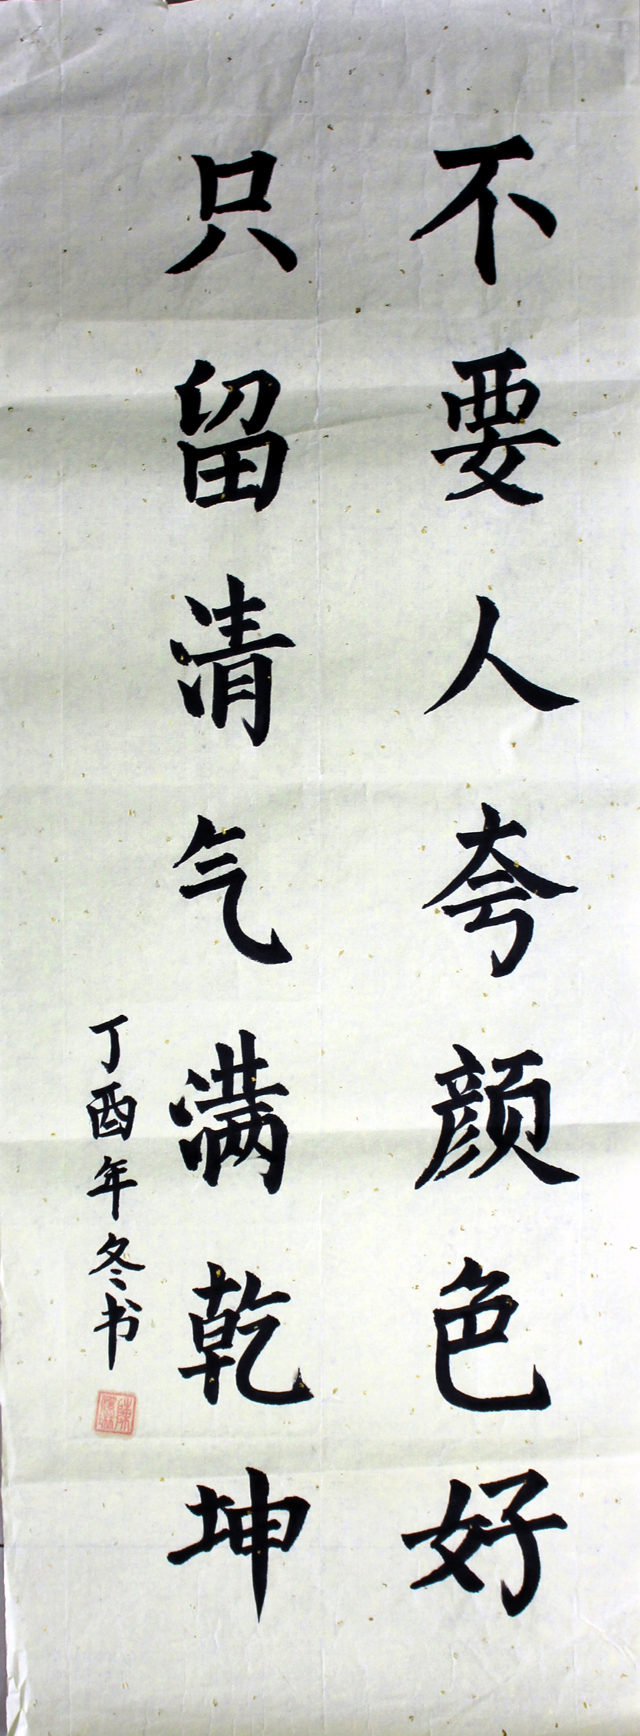 不要人夸颜色好
只留清气满乾坤
丁酉年冬书